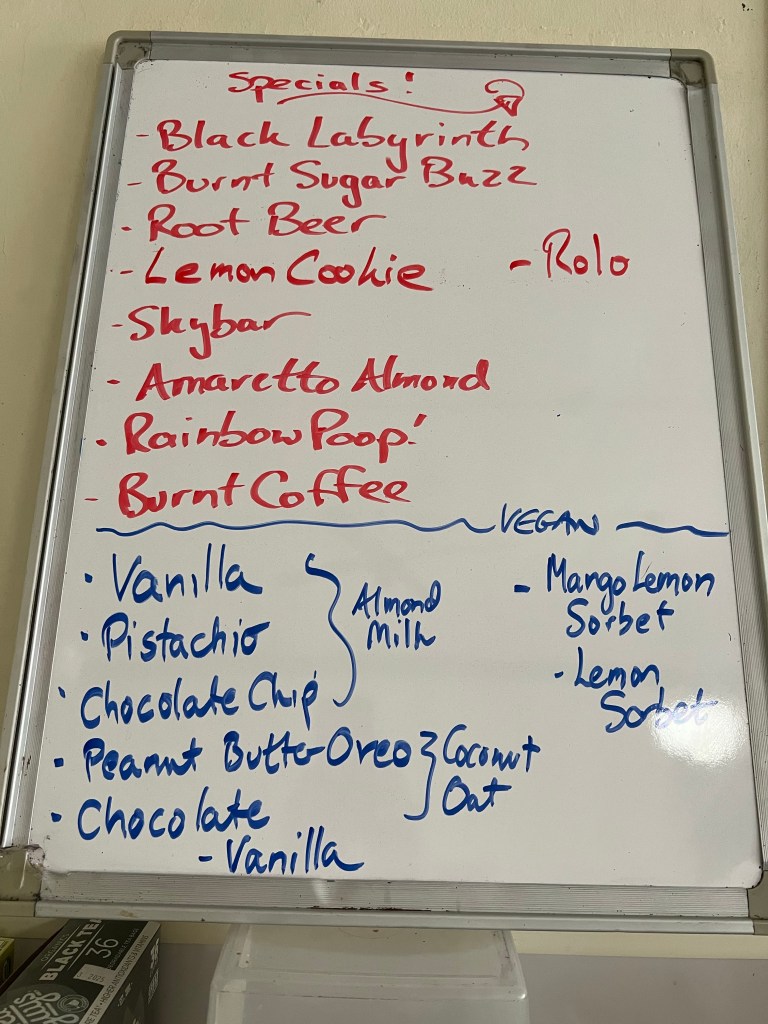 Specials!
- Black Labyrinth
- Burnt Sugar Buzz
- Root Beer
- Lemon Cookie
- Rolo
- Skybar
- Amaretto Almond
- Rainbow Poop!
- Burnt Coffee
VEGAN
- Vanilla
- Pistachio
- Chocolate Chip
Almond
Milk
- Peanut Butter Oreo
- Chocolate
Coconut
Oat
- Vanilla
- Mango Lemon
Sorbet
- Lemon
Sorbet
BLACK TEA
36